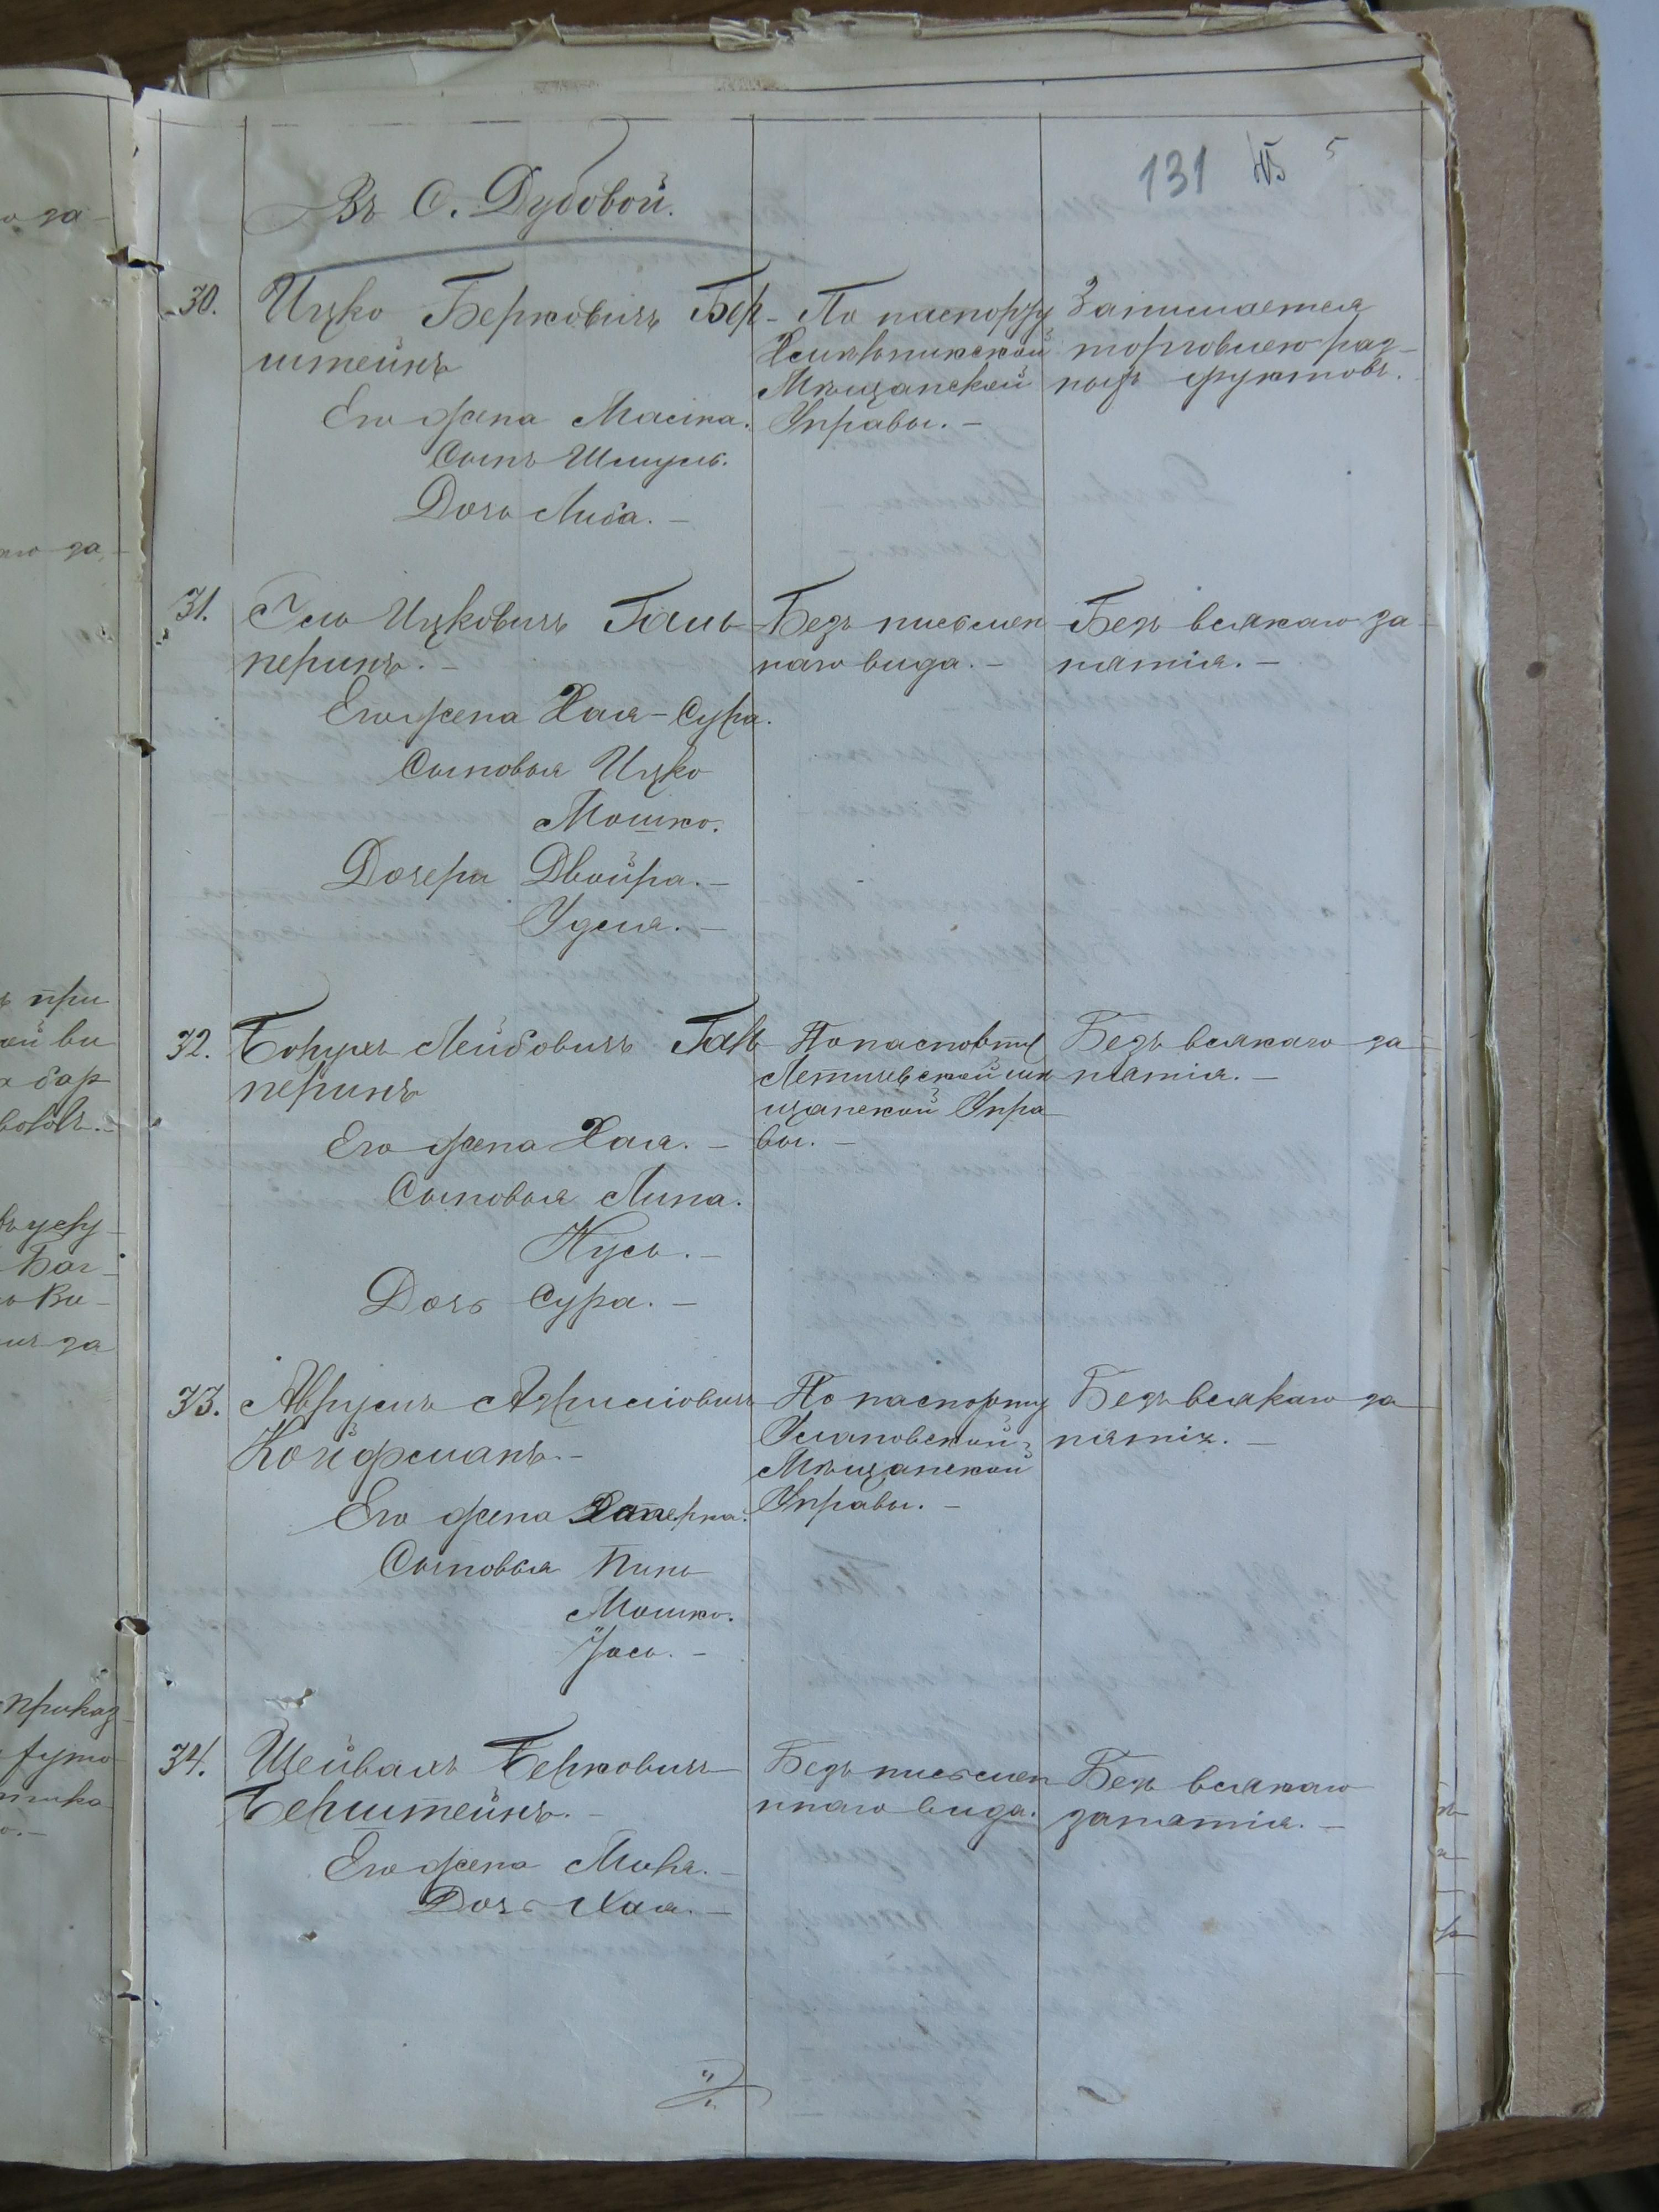 131 5
Въ С. Дубовой.
30. Ицко Берковичъ Бер-
штейнъ
Его жена Масіка.
Сынъ Шмуль.
Дочь Либа. —
По паспорту
Хмѣльникской
Мѣщанской
Управы. —
Занимается
торговлею раз-
ныхъ фруктовъ.
31. Іось Ицковичъ Галь-
перинъ. —
Его жена Хая-Сура.
Сыновья Ицко
Мошко.
Дочери Двойра. —
Удля. —
Безъ письмен
наго вида. —
Безъ всякаго за-
нятія. —
32. Борухъ Лейбовичъ Галь
перинъ
Его жена Хая. —
Сыновья Липа.
Нусь. —
Дочь Сура. —
По паспорту
Летичевской мѣ
щанской Упра-
вы. —
Безъ всякаго за-
нятія. —
33. Аврумъ Абрамовичъ
Койфманъ. —
Его жена
Сыновья Пинь
Мошко.
Іось. —
По паспорту
Улановской
Мѣщанской
Управы. —
Безъ всякаго за-
нятія. —
34. Шейвахъ Берковичъ
Берштейнъ. —
Его жена Миня. —
Дочь Хая. —
Безъ письмен
ннаго вида.
Безъ всякаго
занятія. —